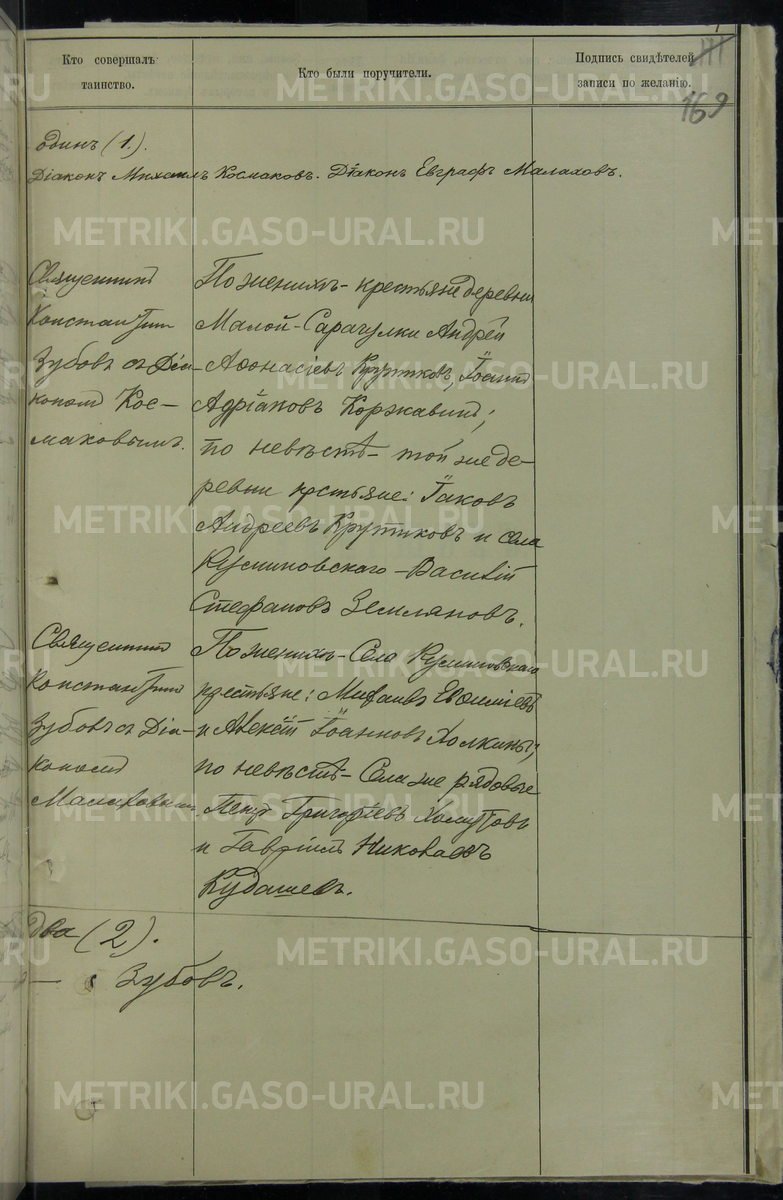 Кто совершалъ таинство.
Кто были поручители.
Подпись свидѣтелей записи по желанію.
169
одинъ (1).
Діаконъ Михаилъ Космаковъ. Діаконъ Евграфъ Малаховъ.
Священникъ
Константинъ
Зубовъ съ Діа-
кономъ Кос-
маковымъ.
По женихѣ - крестьяне деревни
Малой-Сарагулки Андрей
Аѳонасіевъ Крутиковъ, Іоаннъ
Адріановъ Коржавинъ;
по невѣстѣ - той же де-
ревни крстьяне: Іаковъ
Андреевъ Крутиковъ и села
Кусминовскаго - Василій
Стефановъ Земляновъ.
Священникъ
Константинъ
Зубовъ съ Діа-
кономъ
Малаховымъ
По женихѣ - Села
крестьяне: Михаилъ Евѳиміевъ
и Алексѣй Іоанновъ Холкины;
по невѣстѣ - Села же рядовые
Петръ Григоріевъ Хомутовъ
и Гавріилъ Николаевъ
Кудашевъ.
Два (2).
Зубовъ.
METRIKI.GASO-URAL.RU